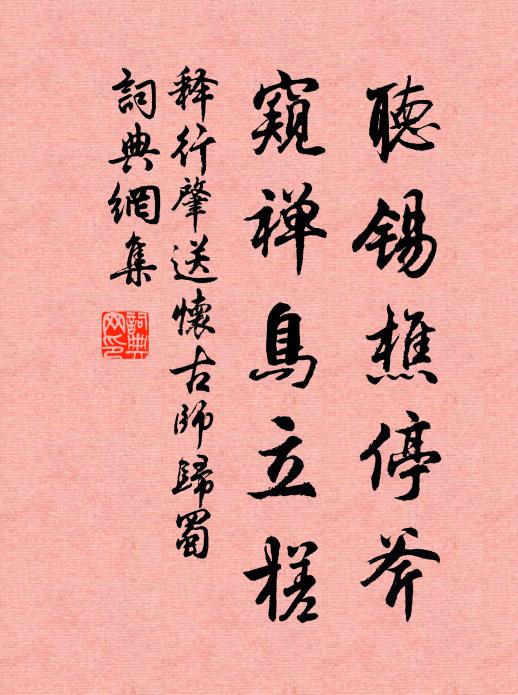 聽錫樵停斧
窺禅鳥立槎
释行肇送懷古師歸蜀
詞典網集
詞典
网印